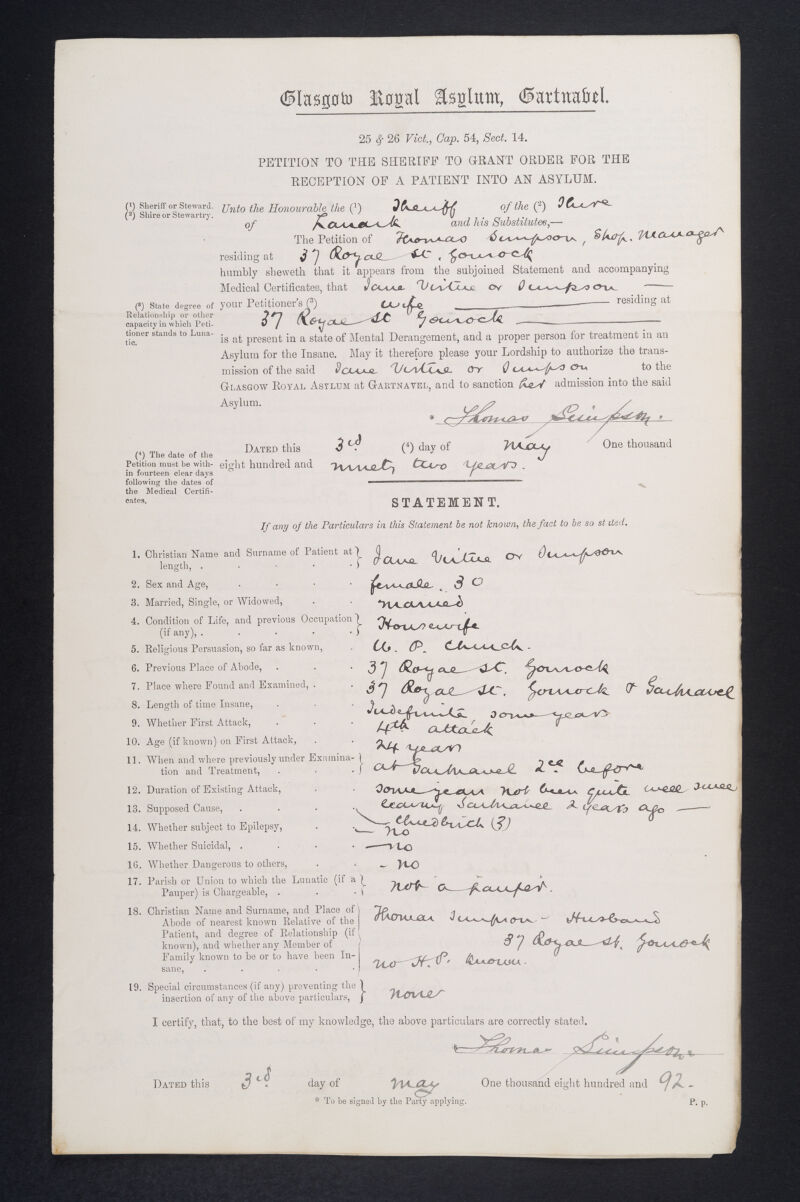 Glasgow Royal Asylum, Gartnabel.
25 & 26 Vict., Cap. 54, Sect. 14.
PETITION TO THE SHERIFF TO GRANT ORDER FOR THE
RECEPTION OF A PATIENT INTO AN ASYLUM.
(¹) Sheriff or Steward.
(²) Shire or Stewartry.
Unto the Honourable the (¹) Sheriff of the (²) Shire
of Lanark and his Substitutes,—
The Petition of Thomas Simpson, Shop. Manager
residing at 37 Royal St. Gourock
humbly sheweth that it appears from the subjoined Statement and accompanying
Medical Certificates, that Jane Virtue or Simpson —
(³) State degree of
Relationship or other
capacity in which Peti-
tioner stands to Luna-
tic.
your Petitioner's (³) wife — residing at
37 Royal St Gourock —
is at present in a state of Mental Derangement, and a proper person for treatment in an
Asylum for the Insane. May it therefore please your Lordship to authorize the trans-
mission of the said Jane Virtue or Simpson to the
GLASGOW ROYAL ASYLUM at GARTNAVEL, and to sanction her admission into the said
Asylum.
* Thomas Simpson.
(⁴) The date of the
Petition must be with-
in fourteen clear days
following the dates of
the Medical Certifi-
cates.
DATED this 3rd (⁴) day of May One thousand
eight hundred and ninety two years.
STATEMENT.
If any of the Particulars in this Statement be not known, the fact to be so stated.
1. Christian Name and Surname of Patient at
length, . . . . . } Jane Virtue or Simpson
2. Sex and Age, . . . . female. 30
3. Married, Single, or Widowed, . . married
4. Condition of Life, and previous Occupation
(if any), . . . . . } Housewife
5. Religious Persuasion, so far as known, . U. P. Church.
6. Previous Place of Abode, . . . 37 Royal St. Gourock
7. Place where Found and Examined, . . 37 Royal St. Gourock & Gartnavel
8. Length of time Insane, . . . Indefinite, some years
9. Whether First Attack, . . . 4th attack
10. Age (if known) on First Attack, . . 24 years
11. When and where previously under Examina-
tion and Treatment, . . . } at Gartnavel 2ce before
12. Duration of Existing Attack, . . some years not been quite well since
leaving Gartnavel 2 years ago —
13. Supposed Cause, . . . . Childbirth (3)
14. Whether subject to Epilepsy, . . — no
15. Whether Suicidal, . . . . — no
16. Whether Dangerous to others, . . - no
17. Parish or Union to which the Lunatic (if a
Pauper) is Chargeable, . . . } not a pauper.
18. Christian Name and Surname, and Place of
Abode of nearest known Relative of the
Patient, and degree of Relationship (if
known), and whether any Member of
Family known to be or to have been In-
sane, . . . . .
Thomas Simpson - Husband
37 Royal St. Gourock
no H. P. known.
19. Special circumstances (if any) preventing the
insertion of any of the above particulars, } none
I certify, that, to the best of my knowledge, the above particulars are correctly stated.
* Thomas Simpson.
DATED this 3rd day of May One thousand eight hundred and 92-
* To be signed by the Party applying.
P. p.